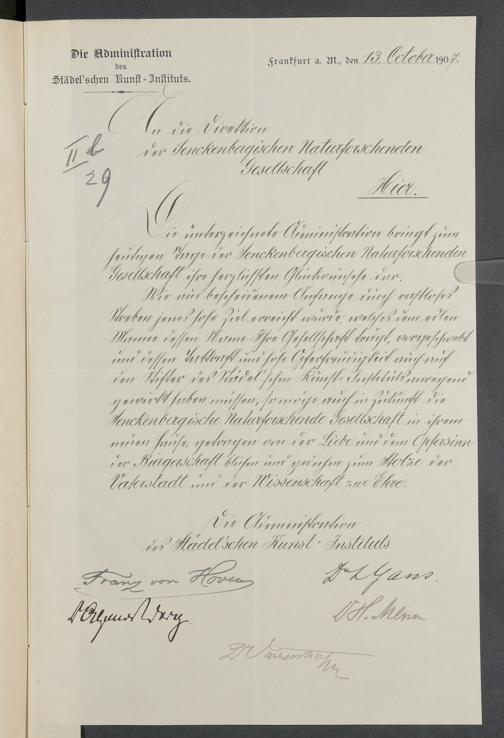 Die Administration
des
Städel'schen Kunst-Instituts.
Frankfurt a. M., den 13. October 1907.
II b
29
An die Direktion
der Senckenbergischen Naturforschenden
Gesellschaft
Hier.
Die unterzeichnete Administration bringt zum
heutigen Tage der Senckenbergischen Naturforschenden
Gesellschaft ihre herzlichsten Glückwünsche dar.
Wie aus bescheidenem Anfange durch rastloses
Streben jenes hohe Ziel erreicht wurde, welches dem edlen
Manne dessen Name Ihre Gesellschaft trägt, vorgeschwebt
und dessen Tatkraft und hohe Opferfreudigkeit auch auf
den Stifter des Städel'schen Kunst-Instituts anregend
gewirkt haben müssen, so möge auch in Zukunft die
Senckenbergische Naturforschende Gesellschaft in ihrem
neuen Hause, getragen von der Liebe und dem Opfersinn
der Bürgerschaft blühen und gedeihen zum Stolze der
Vaterstadt und der Wissenschaft zur Ehre.
Die Administration
des Städel'schen Kunst-Instituts.
Franz von Hoven
Dr. L. Gans.
Dr.
Dr. H.
Dr.